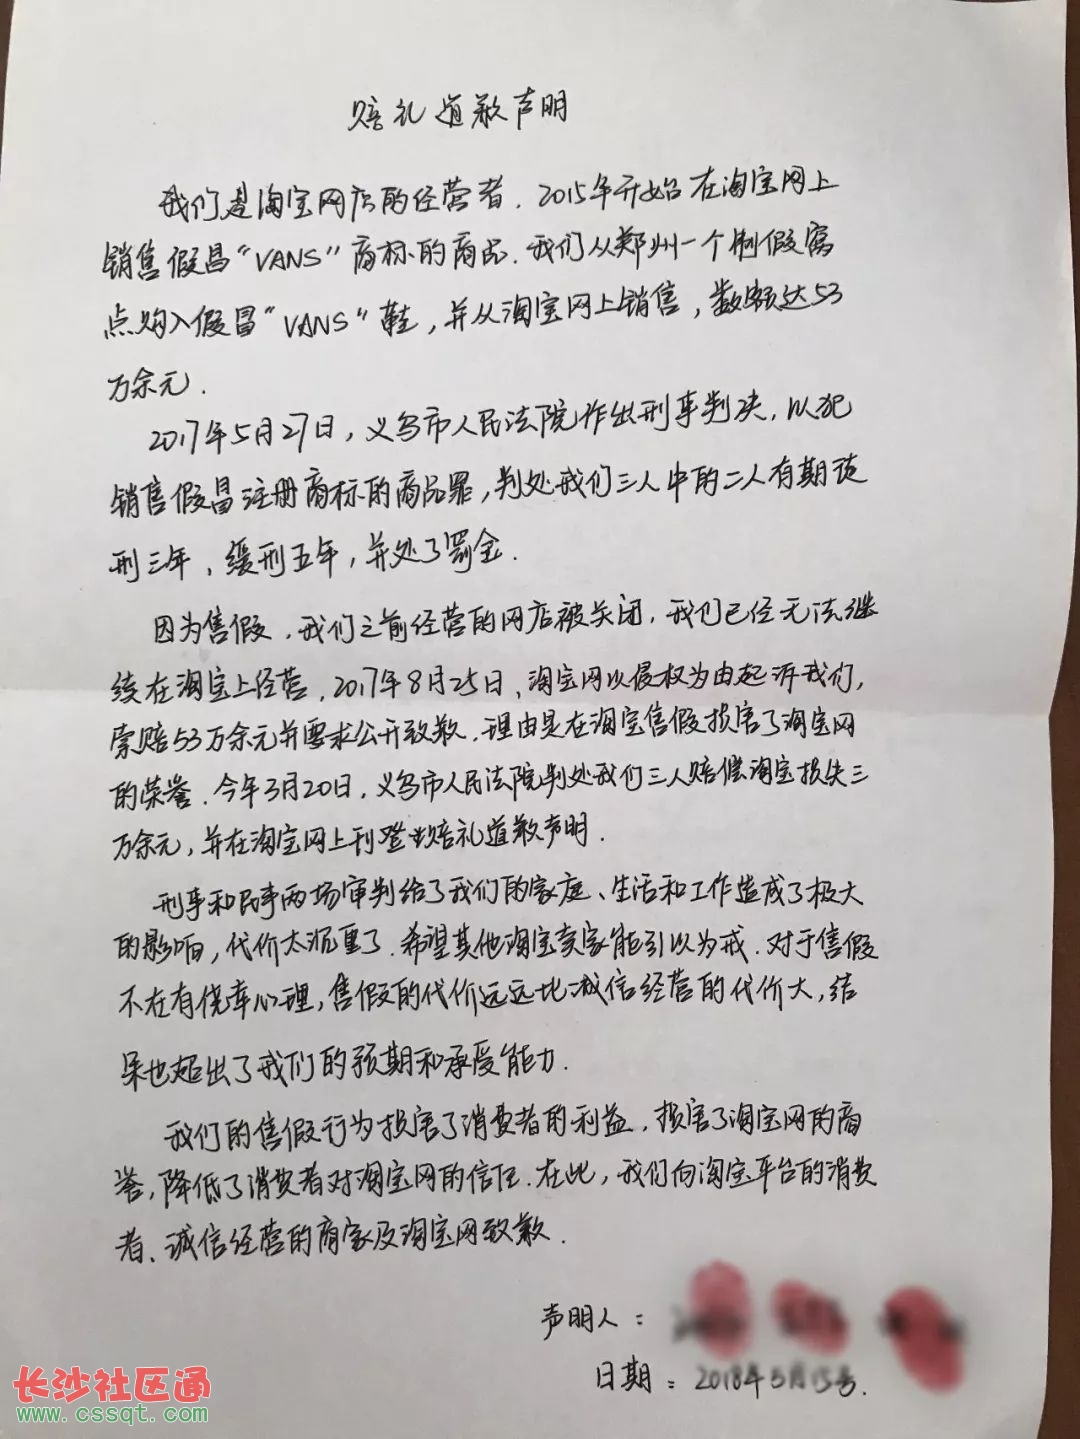 赔礼道歉声明
我们是淘宝网店的经营者．2015年开始在淘宝网上
销售假冒“VANS”商标的商品．我们从郑州一个制假窝
点购入假冒“VANS”鞋，并从淘宝网上销售，数额达53
万余元．
2017年5月27日，义乌市人民法院作出刑事判决，以犯
销售假冒注册商标的商品罪，判处我们三人中的二人有期徒
刑三年、缓刑五年，并处了罚金．
因为售假，我们之前经营的网店被关闭，我们已经无法继
续在淘宝上经营．2017年8月25日、淘宝网以侵权为由起诉我们，
索赔53万余元并要求公开致歉．理由是在淘宝售假损害了淘宝网
的荣誉．今年3月20日，义乌市人民法院判处我们三人赔偿淘宝损失三
万余元，并在淘宝网上刊登赔礼道歉声明．
刑事和民事两场审判给了我们的家庭、生活和工作造成了极大
的影响，代价太沉重了．希望其他淘宝卖家能引以为戒．对于售假
不在有侥幸心理，售假的代价远远比诚信经营的代价大，结
果也超出了我们的预期和承受能力．
我们的售假行为损害了消费者的利益，损害了淘宝网的商
誉，降低了消费者对淘宝网的信任．在此，我们向淘宝平台的消费
者、诚信经营的商家及淘宝网致歉．
声明人：
日期：2018年5月15号．
长沙社区通
www.cssqt.com